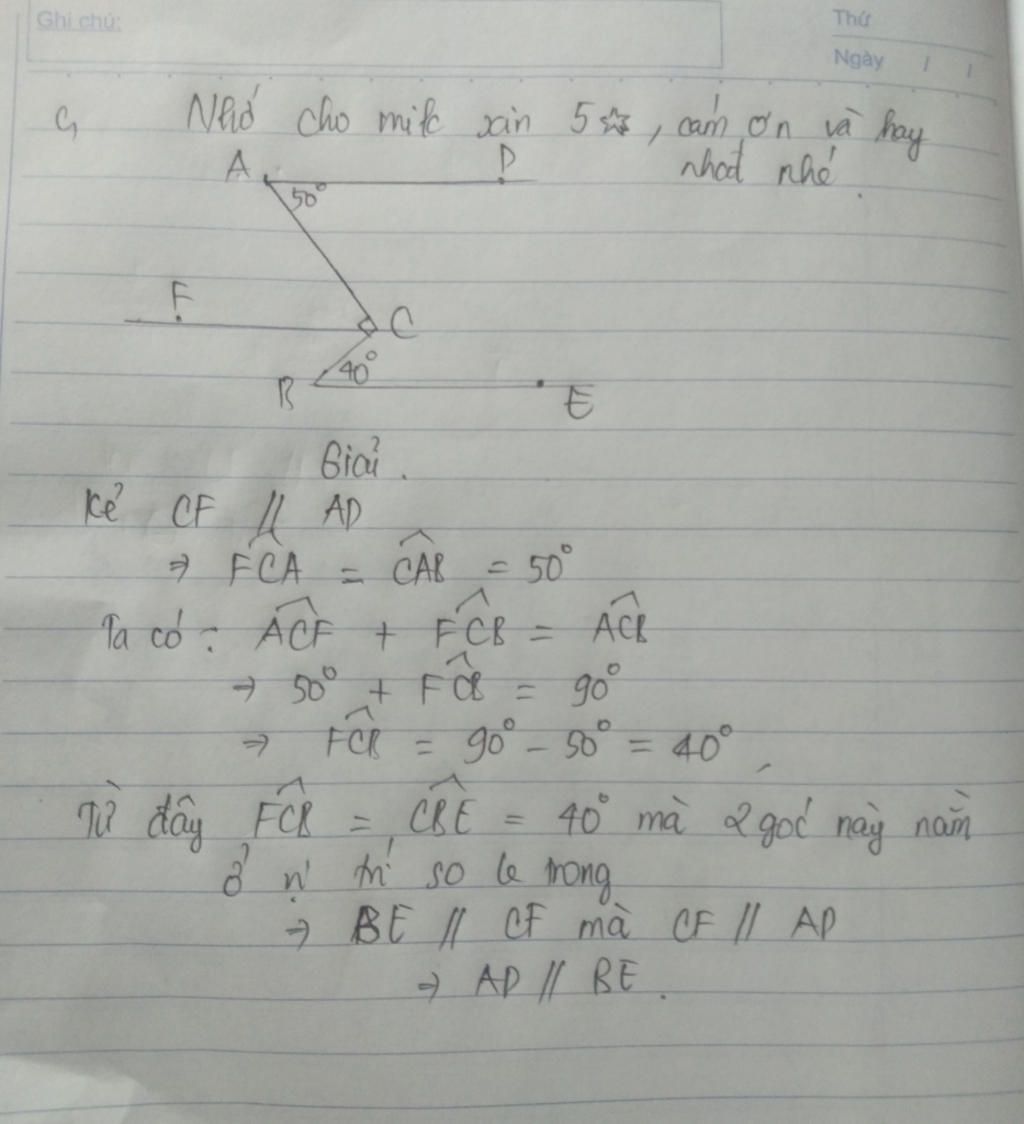 Ghi chú:
Thứ
Ngày / /
G,
Nhớ cho mik xin 5☆, cám ơn và hay
nhất nhé.
A
D
50°
F
C
40°
B
E
Giải.
Kẻ CF // AD
⇒ FCA = CAB = 50°
Ta có: ACF + FCB = ACB
→ 50° + FCB = 90°
⇒ FCB = 90° - 50° = 40°
Từ đây FCB = CBE = 40° mà 2 góc này nằm
ở vị trí so le trong
⇒ BE // CF mà CF // AD
⇒ AD // BE.